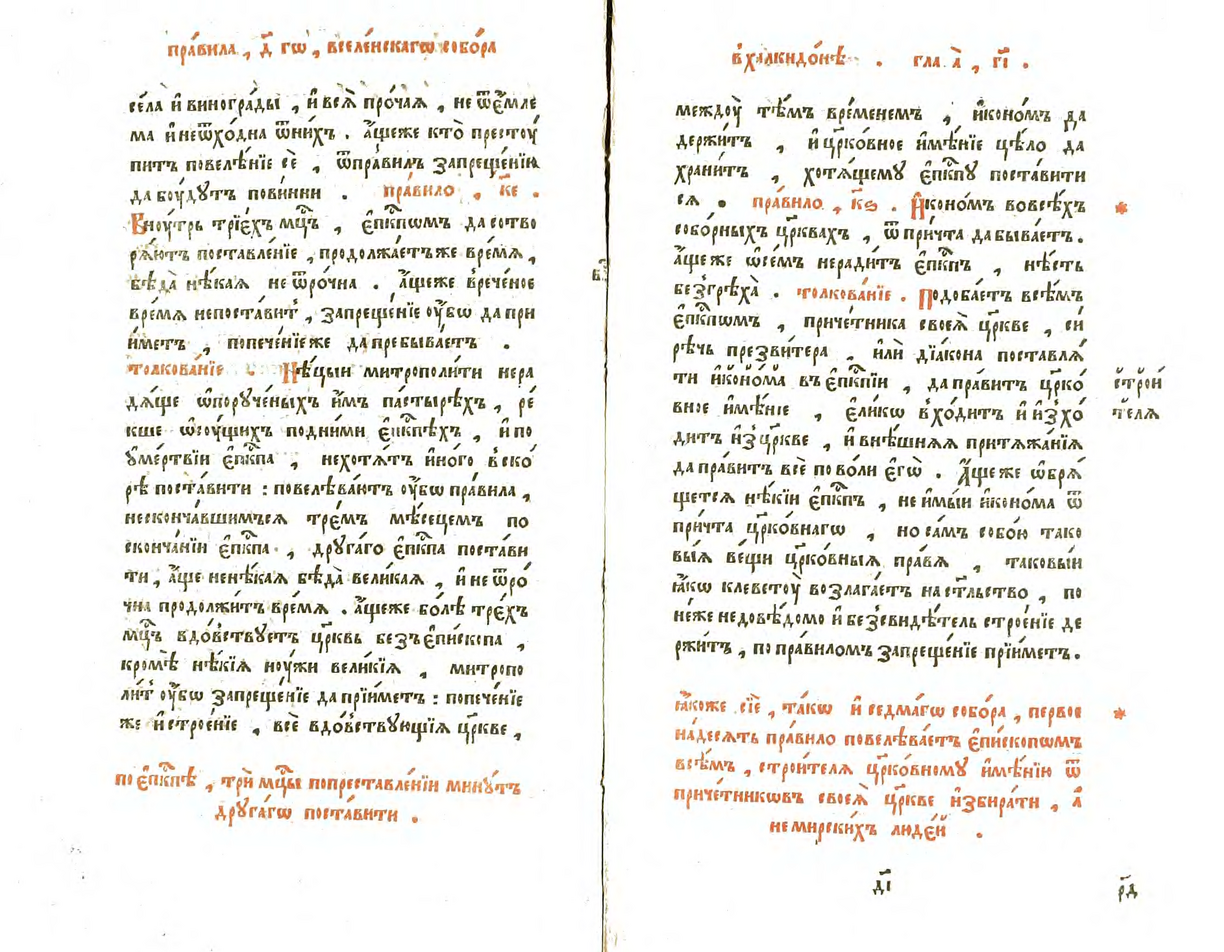 пра́вила , д҃ гѡ , вселе́нскагѡ собо́ра
се́ла и҆ виногра́ды , и҆ всѧ̀ про́чаѧ , не ѿе́мле
ма и҆ неѿхо́дна ѿни́хъ . а҆́щеже кто̀ престоу́
питъ повелѣ́нїе сѐ , ѿпра́вилъ запреще́нїю
да бо́удꙋтъ пови́нни . пра́вило , к҃е .
Вноу́трь трїе́хъ мц҃ъ , є҆пⷭ҇кпѡмъ да сотво
рѧ́ютъ поставле́нїе , продолжа́етъже вре́мѧ ,
бѣда̀ нѣ́каѧ не ѿро́чна . а҆́щеже вρече́ное
вре́мѧ непоста́витъ , запреще́нїе ᲂу҆́бѡ да прїи
и҆́метъ , попече́нїеже да пребыва́етъ .
толкова́нїе . Нѣ́цыи митрополи́ти нера
дѧ́ще ѡ҆пору́ченыхъ и҆̀мъ па́стырѣхъ , ре́
кше ѡ҆су́щихъ подни́ми є҆пⷭ҇кпѣхъ , и҆ по
ᲂу҆ме́ртвїи є҆пⷭ҇кпа , нехотѧ́тъ и҆но́го вско́
рѣ поста́вити : повелѣва́ютъ ᲂу҆́бѡ пра́вила ,
несконча́вшимъсѧ тре́мъ мѣ́сецемъ по
сконча́нїи є҆пⷭ҇кпа , дрꙋга́го є҆пⷭ҇кпа поста́ви
ти , а҆́ще ненѣ́каѧ бѣда̀ вели́каѧ , и҆ не ѿро́
чна продолжи́тъ вре́мѧ . а҆́щеже бо́лѣ тре́хъ
мц҃ъ вдо́вствꙋетъ цр҃квь безъ є҆пи́скопа ,
кромѣ̀ нѣ́кїѧ ноу́жи вели́кїѧ , митропо
ли́тъ ᲂу҆́бѡ запреще́нїе да прїи́метъ : попече́нїе
же и҆ строе́нїе , всѐ вдо́вствꙋющїѧ цр҃кве ,
по є҆пⷭ҇кпѣ , трѝ мц҃ы попреставле́нїи минꙋ́тъ
дрꙋга́гѡ поста́вити .
вхалкидо́нѣ . гла. а҃ , г҃і .
междоу̀ тѣ́мъ вре́менемъ , и҆коно́мъ да
держи́тъ , и҆ цр҃ко́вное и҆мѣ́нїе цѣ́ло да
храни́тъ , хотѧ́щемꙋ є҆пⷭ҇кпꙋ поста́вити
сѧ . пра́вило , к҃ѕ . И҆коно́мъ вовсѣ́хъ *
собо́рныхъ цр҃квахъ , ѿ при́чта да быва́етъ .
а҆́щеже ѡ҆се́мъ неради́тъ є҆пⷭ҇кпъ , нѣ́сть
безгрѣха̀ . толкова́нїе . Подоба́етъ всѣ́мъ
є҆пⷭ҇кпѡмъ , приче́тника своеѧ̀ цр҃кве , си́
рѣчь презви́тера , и҆лѝ дїа́кона поставлѧ́
ти и҆коно́ма въ є҆пⷭ҇кпїи , да пра́витъ цр҃ко́ строи́
вное и҆мѣ́нїе , є҆ли́кѡ вхо́дитъ и҆ и҆зхо́ телѧ
дитъ и҆з цр҃кве , и҆ внѣ́шнѧѧ притѧжа́нїѧ
да пра́витъ всѐ по во́ли є҆гѡ̀ . А҆́щеже ѡ҆брѧ́
щетсѧ нѣ́кїи є҆пⷭ҇кпъ , не и҆мы́и и҆коно́ма ѿ
при́чта цр҃ко́внагѡ , но са́мъ собо́ю тако
вы́ѧ ве́щи цр҃ко́вныѧ пра́вѧ , таковы́и
ꙗ҆́кѡ клеветоу̀ возлага́етъ на ст҃льство , по
не́же недовѣ́домо и҆ безсвидѣ́тель строе́нїе де
ржи́тъ , по пра́виломъ запреще́нїе прїи́метъ .
ꙗ҆́коже сїѐ , та́кѡ и҆ седма́гѡ собо́ра , первое *
на́десѧть пра́вило повелѣва́етъ є҆пи́скопѡмъ
всѣ́мъ , строи́телѧ цр҃ко́вномꙋ и҆мѣ́нїю ѿ
приче́тникѡвъ своеѧ̀ цр҃кве и҆збира́ти , а҆
не мирски́хъ люде́й .
д҃і р҃д